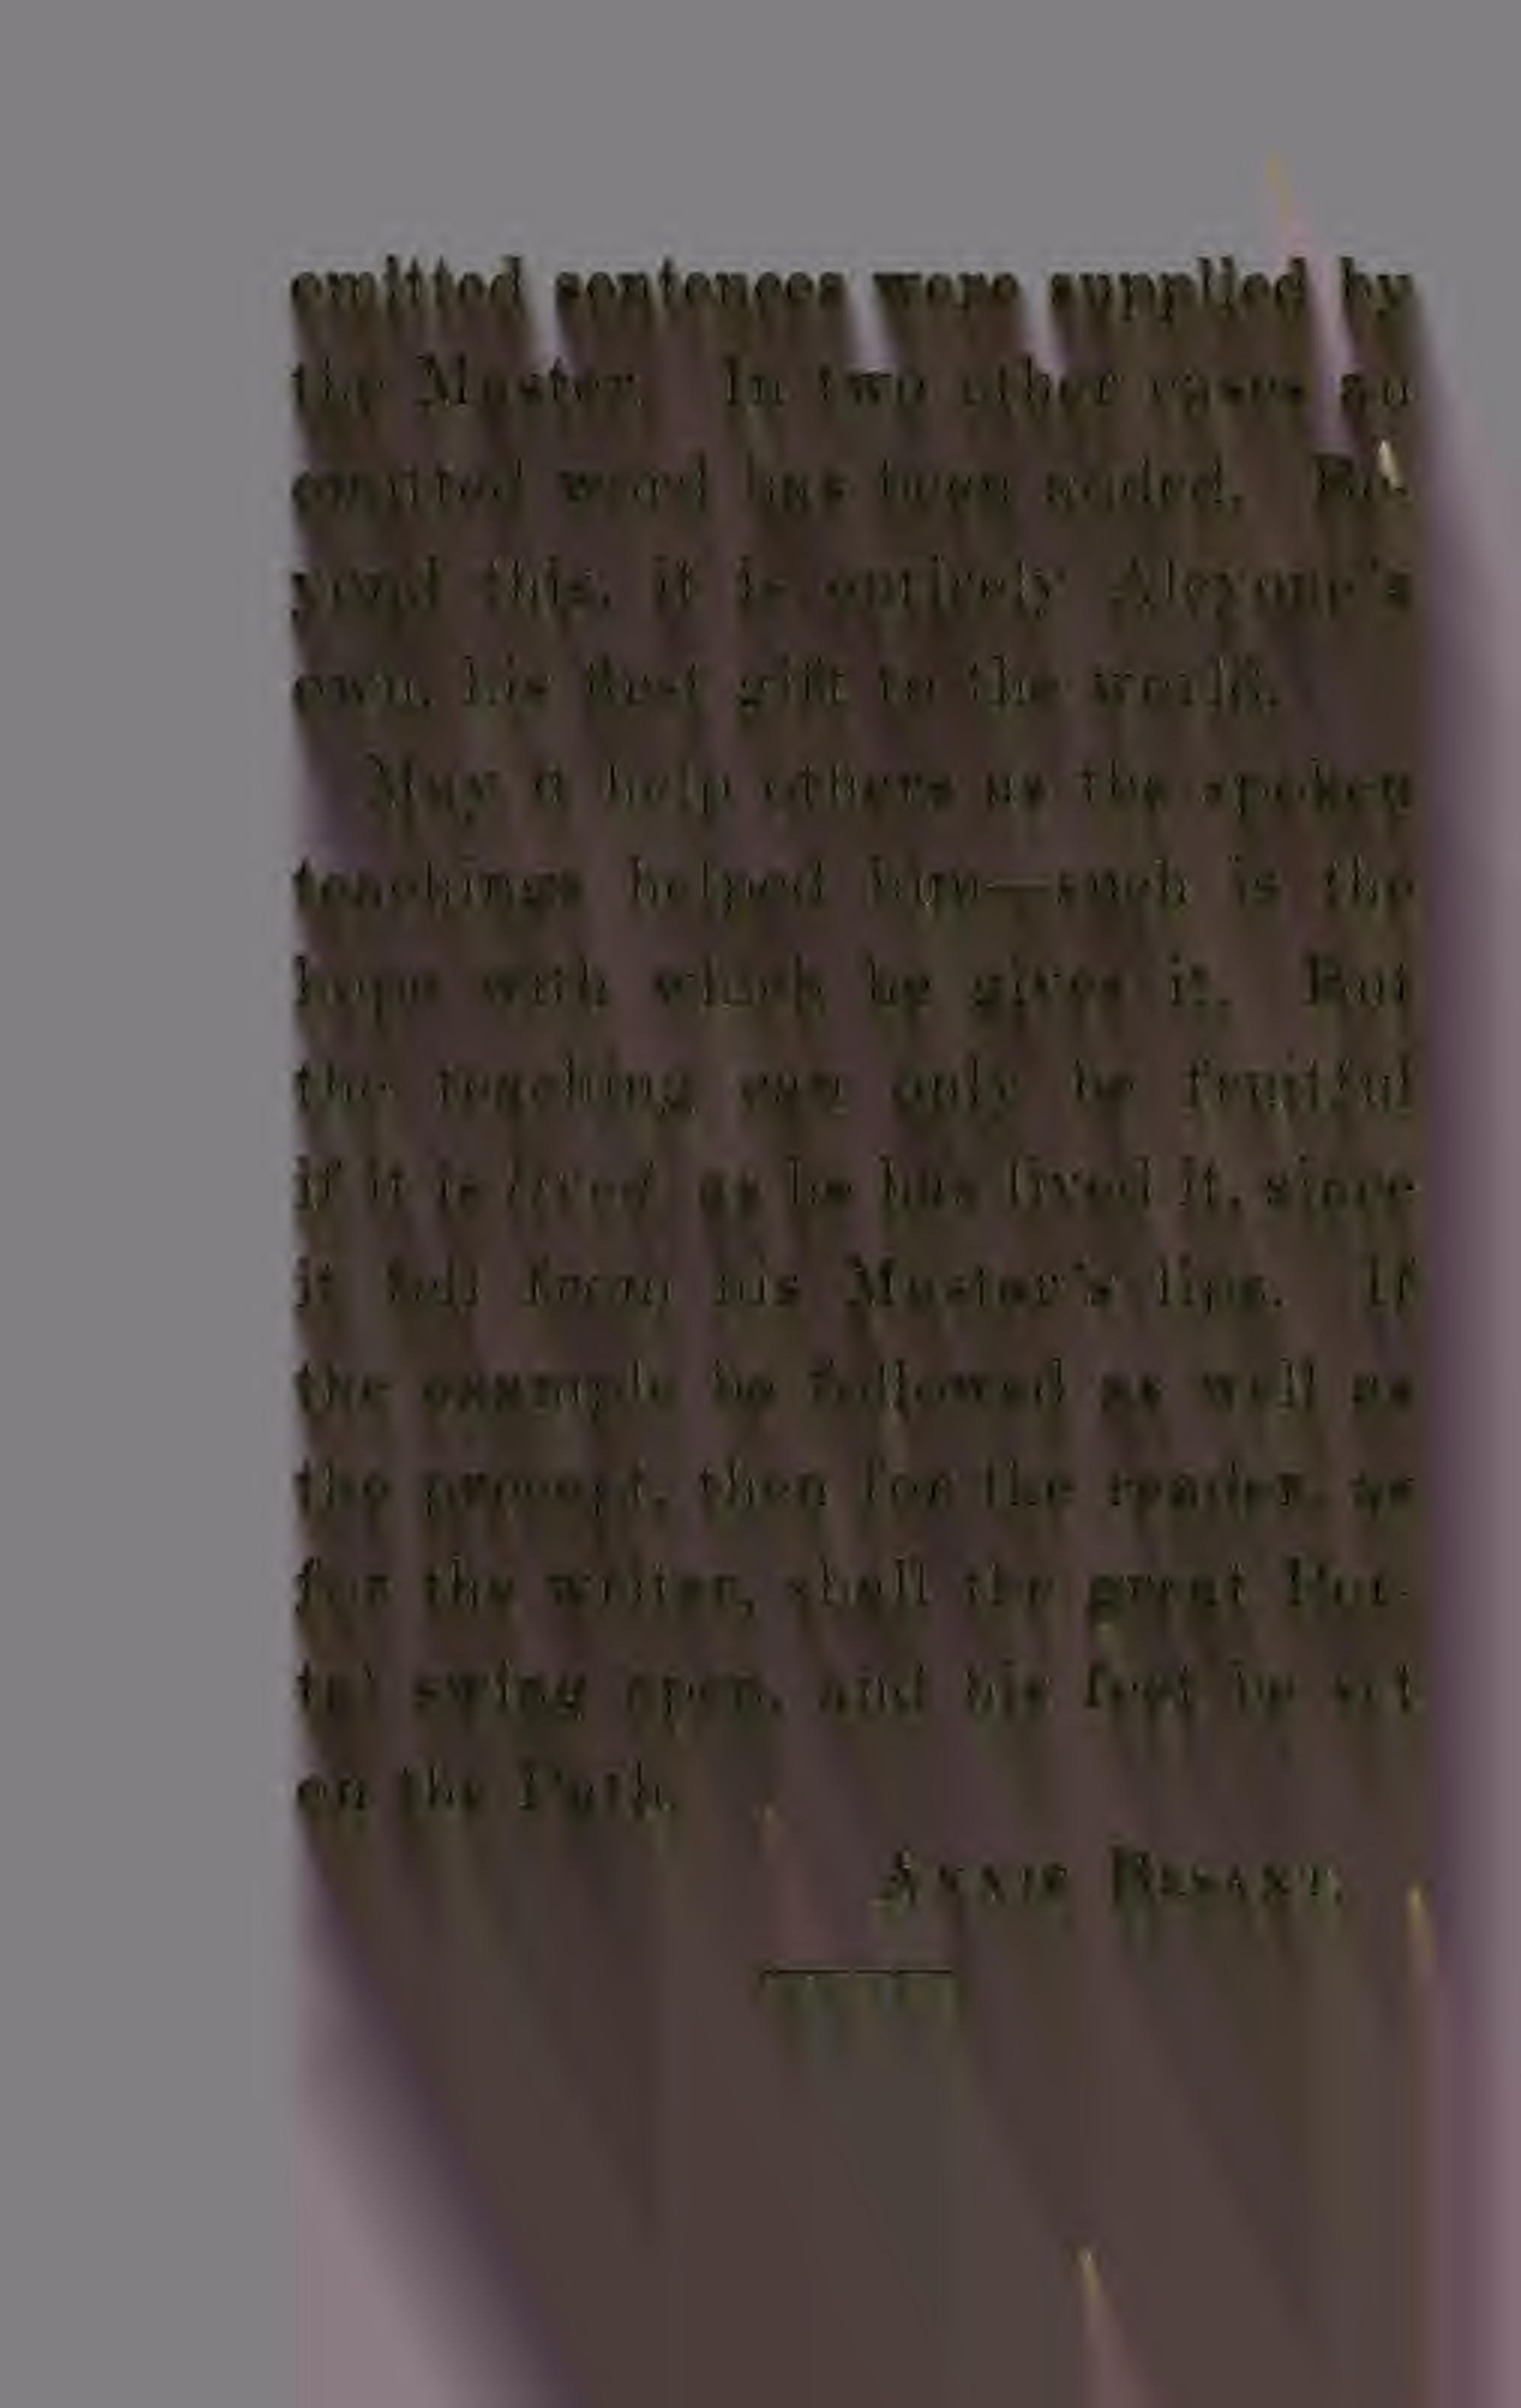 emitted sentences were supplied by
the Master. In two other cases an
omitted word has been added. Be-
yond this, it is entirely Alcyone's
own, his first gift to the world.
May it help others as the spoken
teachings helped him—such is the
hope with which he gives it. But
the teaching can only be fruitful
if it is lived, as he has lived it, since
it fell from his Master's lips. If
the example be followed as well as
the precept, then for the reader, as
for the writer, shall the great Por-
tal swing open, and his feet be set
on the Path.
Annie Besant.